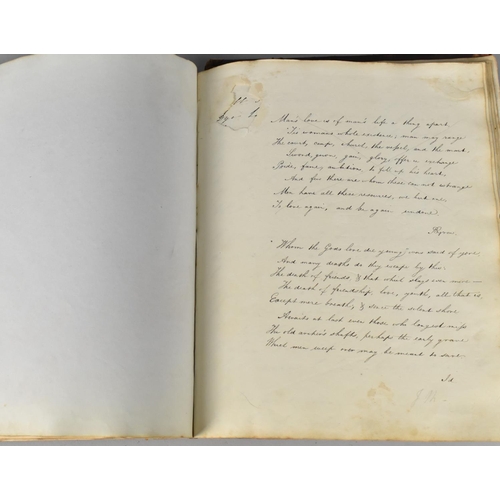 Man's love is of man's life a thing apart,
'Tis womans whole existence; man may range
The court, camp, church, the vessel, and the mart.
Sword, gown, gain, glory, offer in exchange
Pride, fame, ambition, to fill up his heart,
And few there are whom these can not estrange
Men have all these resources, we but one,
To love again, and be again undone.
Byron.
"Whom the Gods love die young," was said of yore,
And many deaths do they escape by this:
The death of friends, & that which slays even more —
The death of friendship, love, youth, all that is,
Except mere breath; & since the silent shore
Awaits at last even those who longest miss
The old archer's shafts, perhaps the early grave
Which men weep over may be meant to save.
Id